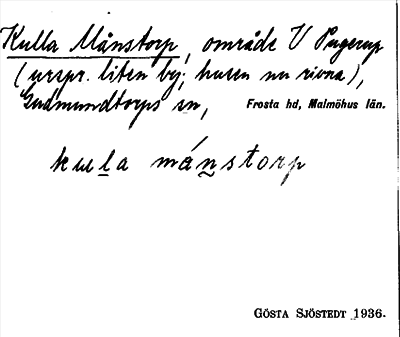 Kulla Månstorp, område V Pugerup
(urspr. liten by; husen nu rivna),
Gudmundtorps sn, Frosta hd, Malmöhus län.
kulla månstorp
GÖSTA SJÖSTEDT 1936.